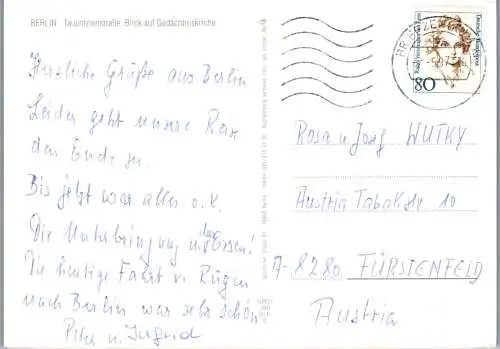 BERLIN Tauentzienstraße, Blick auf Gedächtniskirche
Herzliche Grüße aus Berlin
Leider geht unsere Reise
dem Ende zu.
Bis jetzt war alles o.k.
Die Unterbringung u. das Essen!
Die heutige Fahrt v. Rügen
nach Berlin war sehr schön
u. Ingrid
Deutsche Bundespost
80
Rosa u. Josef WUTKY
Austria Tabakstr 10
A-8280 FÜRSTENFELD
Austria